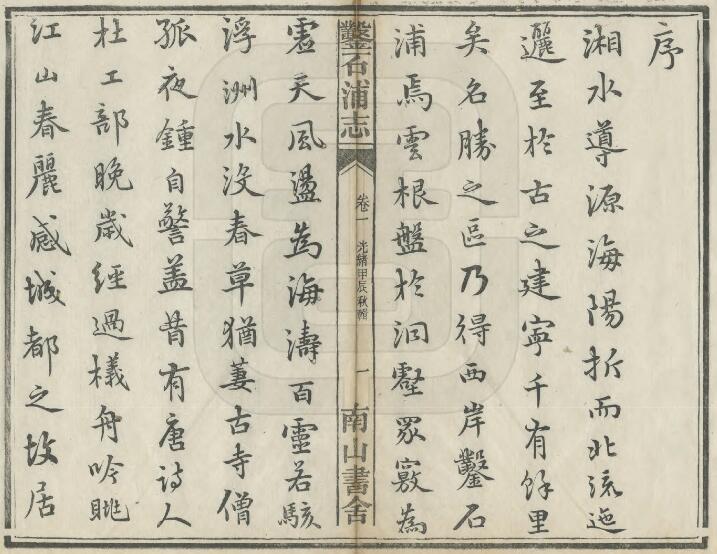 序
湘水導源海陽折而北流迤
邐至於古之建寧千有餘里
矣名勝之區乃得西岸鑿石
浦焉雲根盤於洞壑眾竅為
鑿石浦志 卷一 光緒甲辰秋輯 一 南山書舍
虛天風盪為海濤百靈若駭
浮洲水没春草猶萋古寺僧
孤夜鍾自警盖昔有唐詩人
杜工部晚歲經過檥舟吟眺
江山春麗感城都之故居